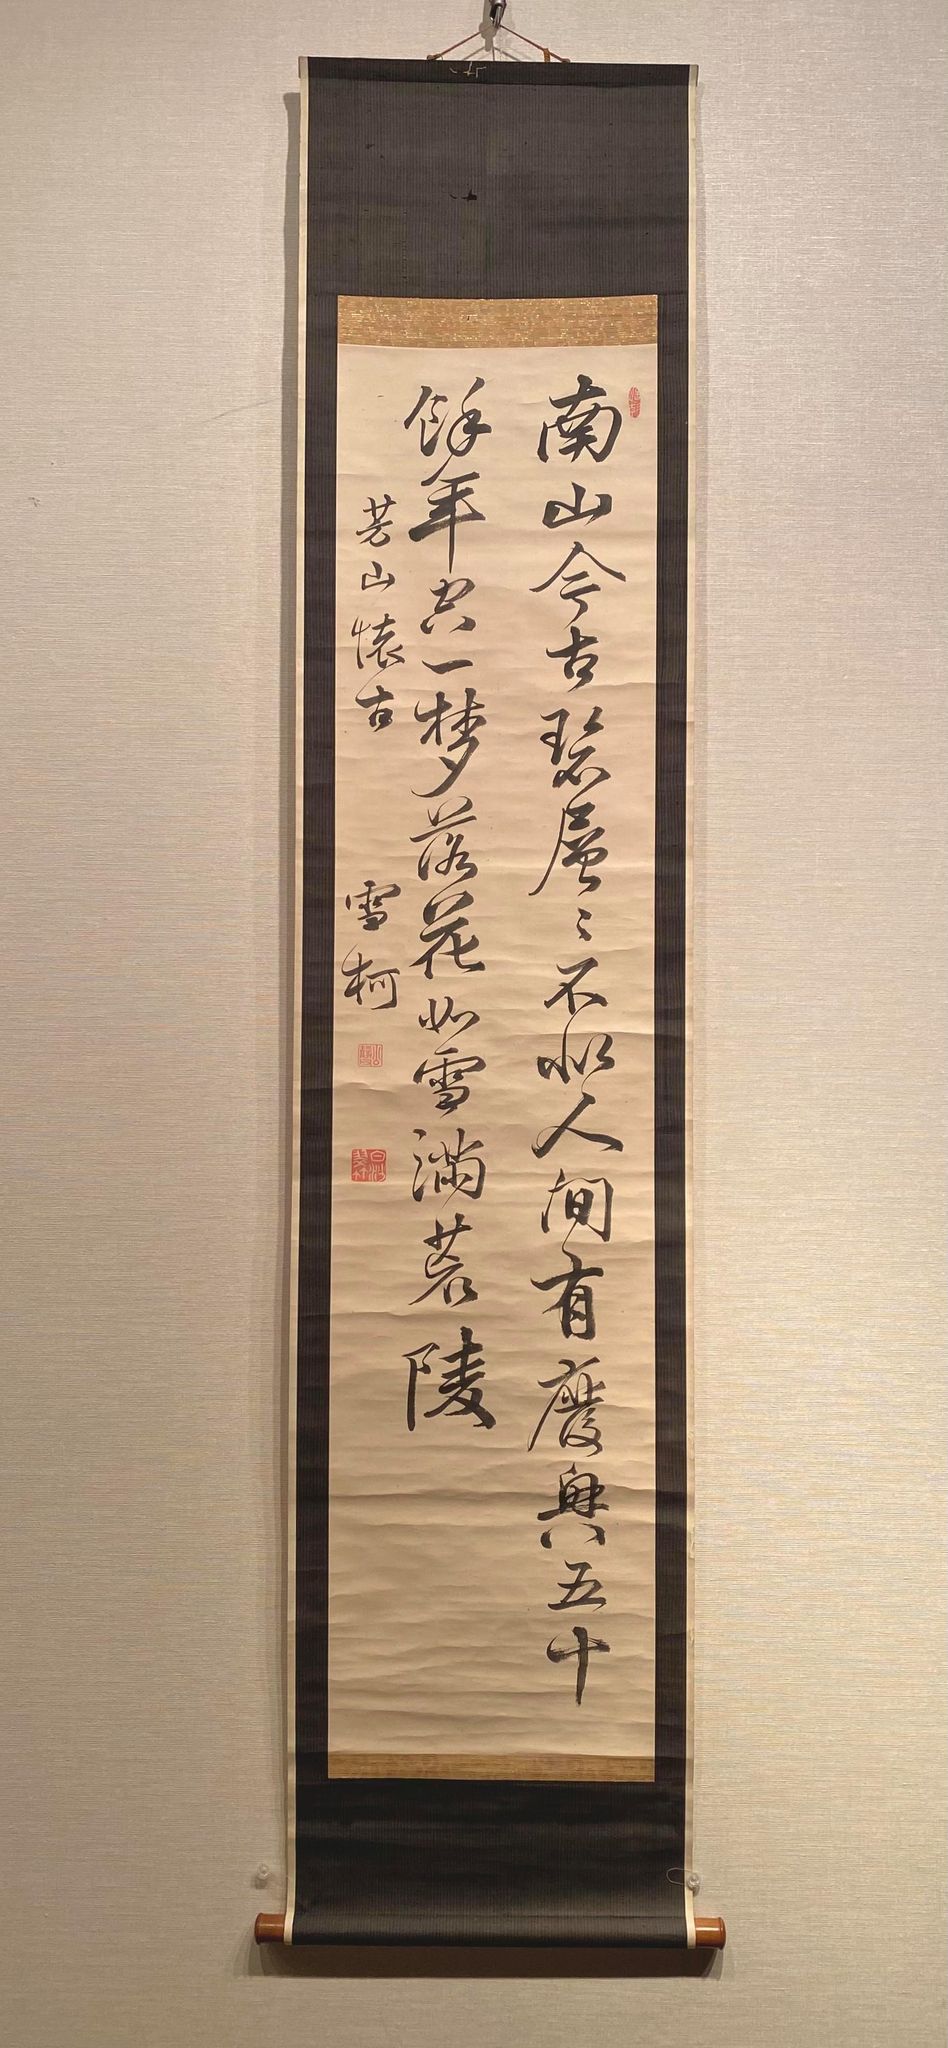 南山今古碧層々不似人間有廢興五十
餘年共一夢落花如雪滿荒陵
芳山懐古
雪柯